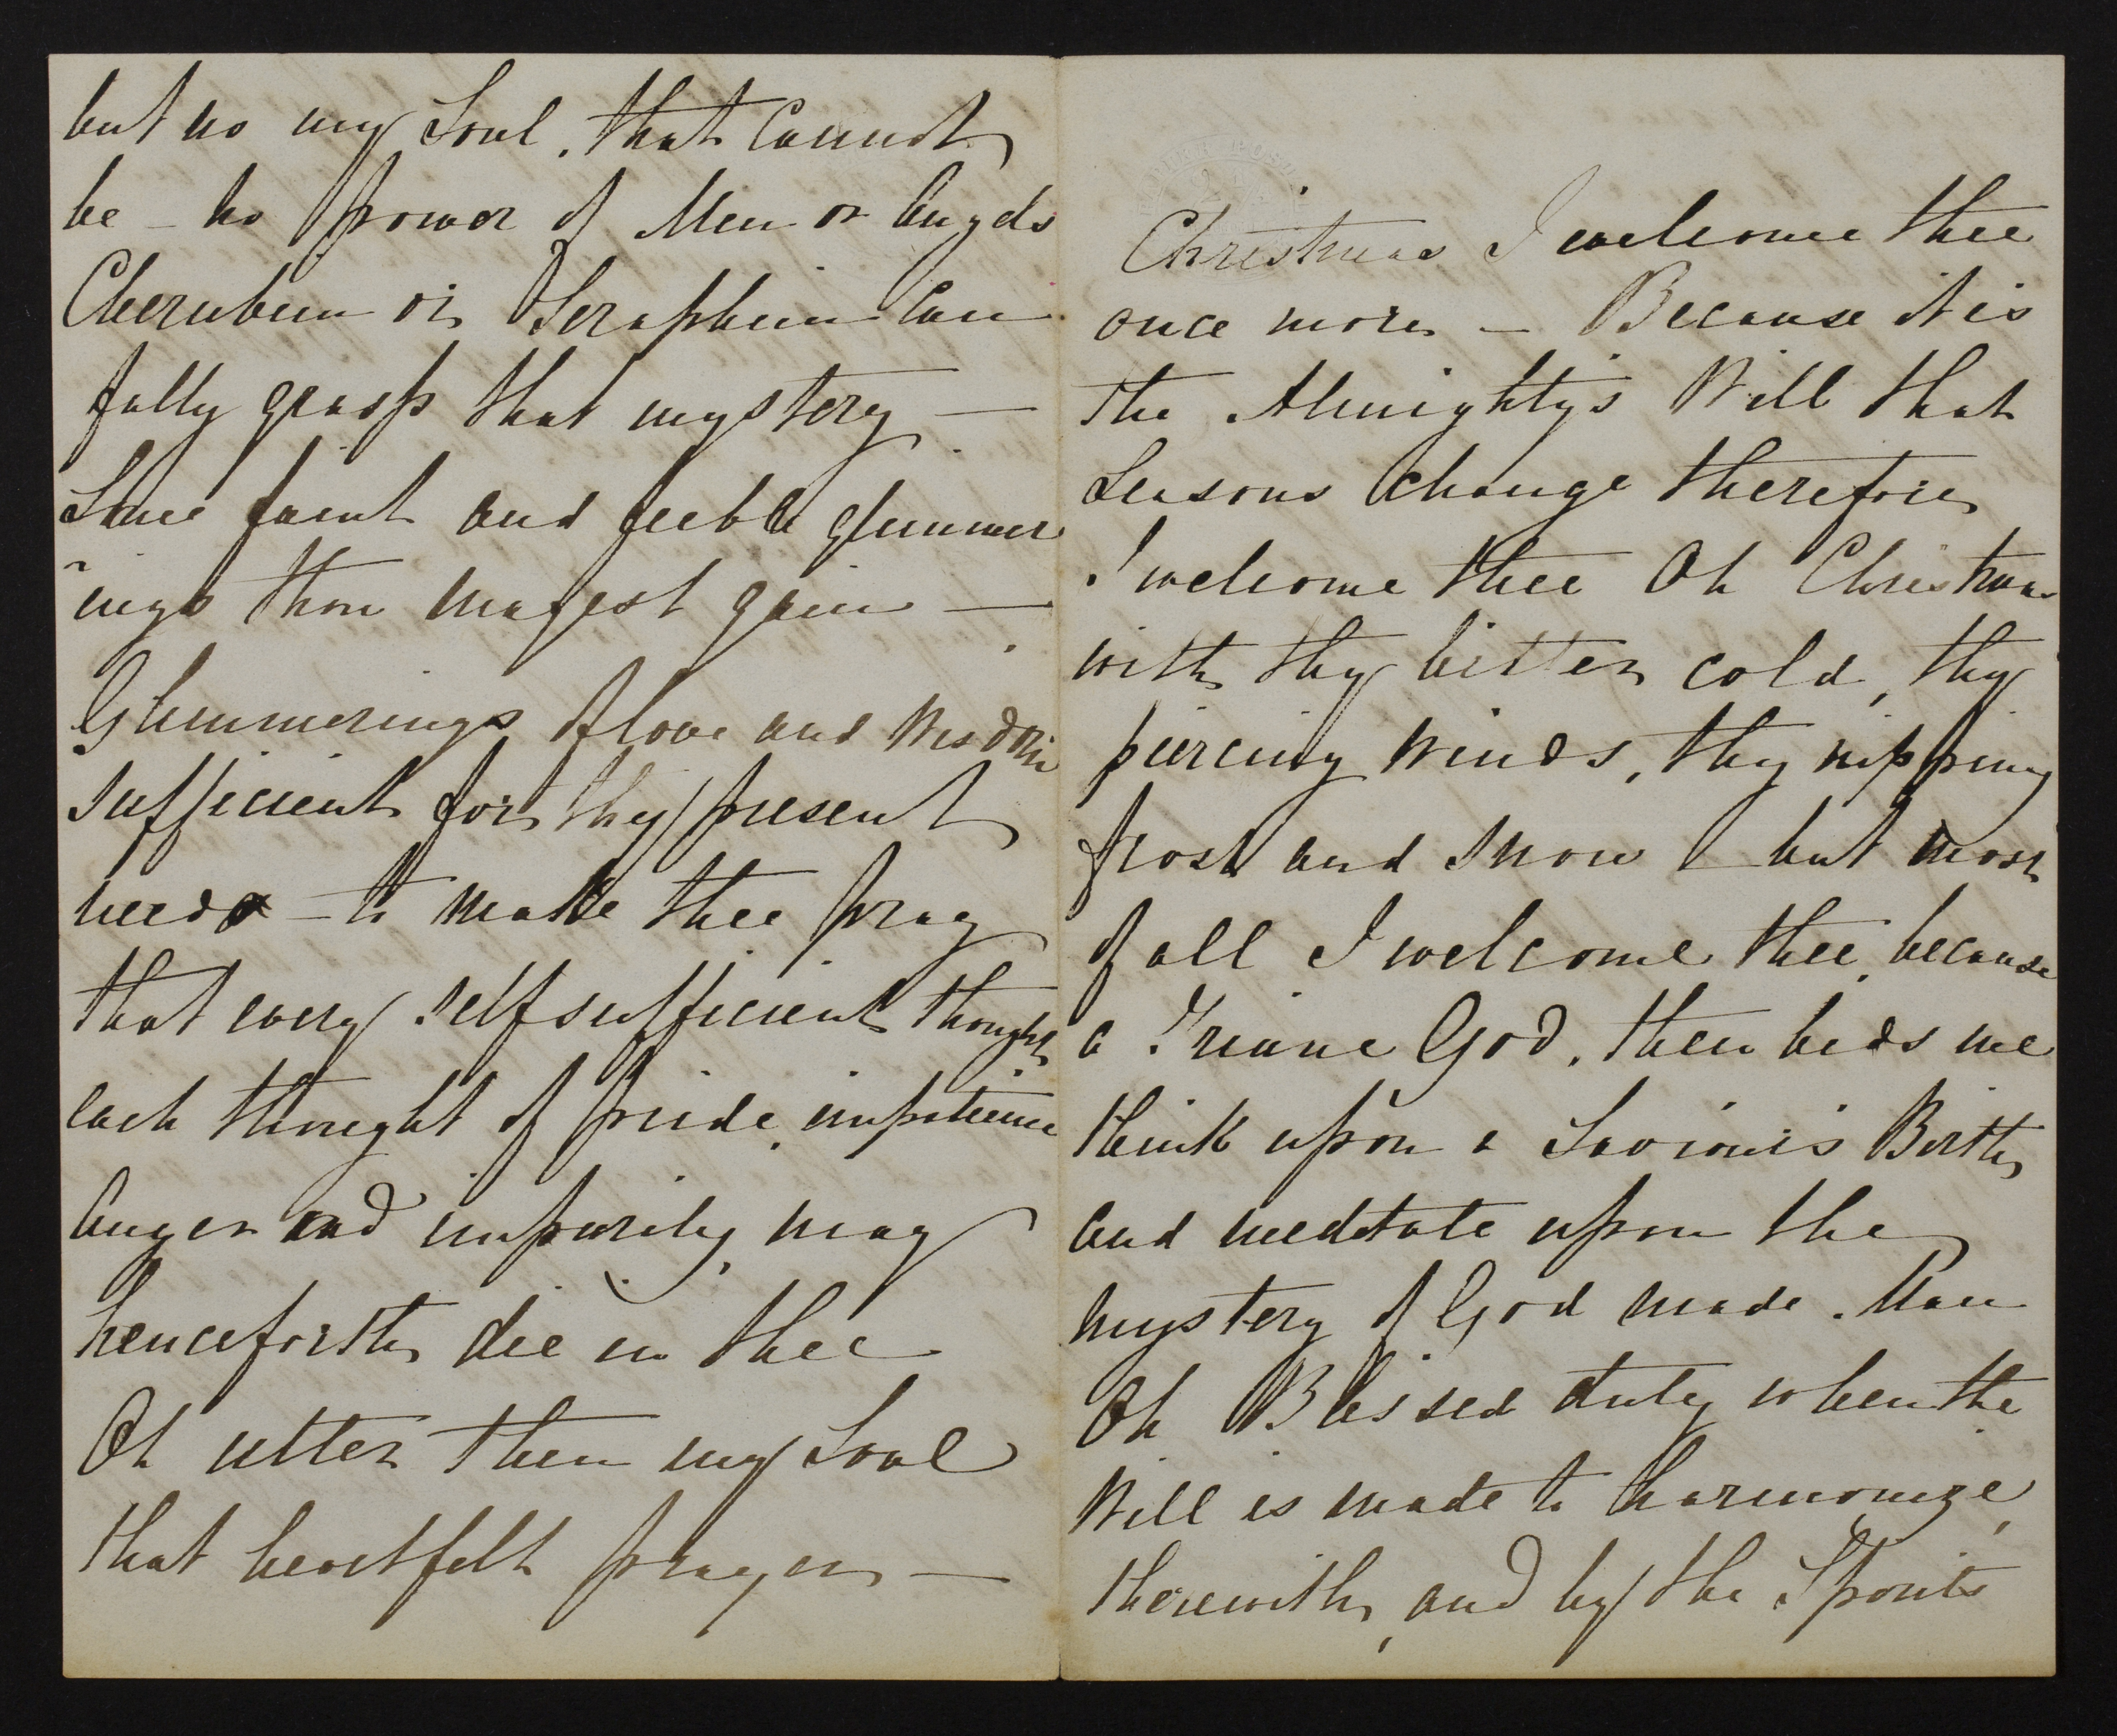 but no my Soul, that Cannot
be – no power of Men or Angels
Cherubim or Seraphim Can
fully grasp that mystery —
Some faint and feeble glimmer
ings thou mayest gain —
Glimmerings of love and Wisdom
sufficient for thy present
needs – to make thee pray
that every self sufficient thought
each thought of pride, impatience
Anger and impurity, may
henceforth die in thee
Oh utter then my Soul
that heartfelt prayer —
Christmas I welcome thee
once more – Because it is
the Almighty's Will that
Seasons Change therefore
I welcome thee Oh Christmas
with thy bitter cold, thy
piercing Winds, thy nipping
frost and snow – but most
of all I welcome thee, because
a Triune God, then bids me
think upon a Saviour's Birth,
and meditate upon the
mystery of God made Man
Oh Blessed duty when the
Will is made to harmonize,
therewith, and by the Spirits